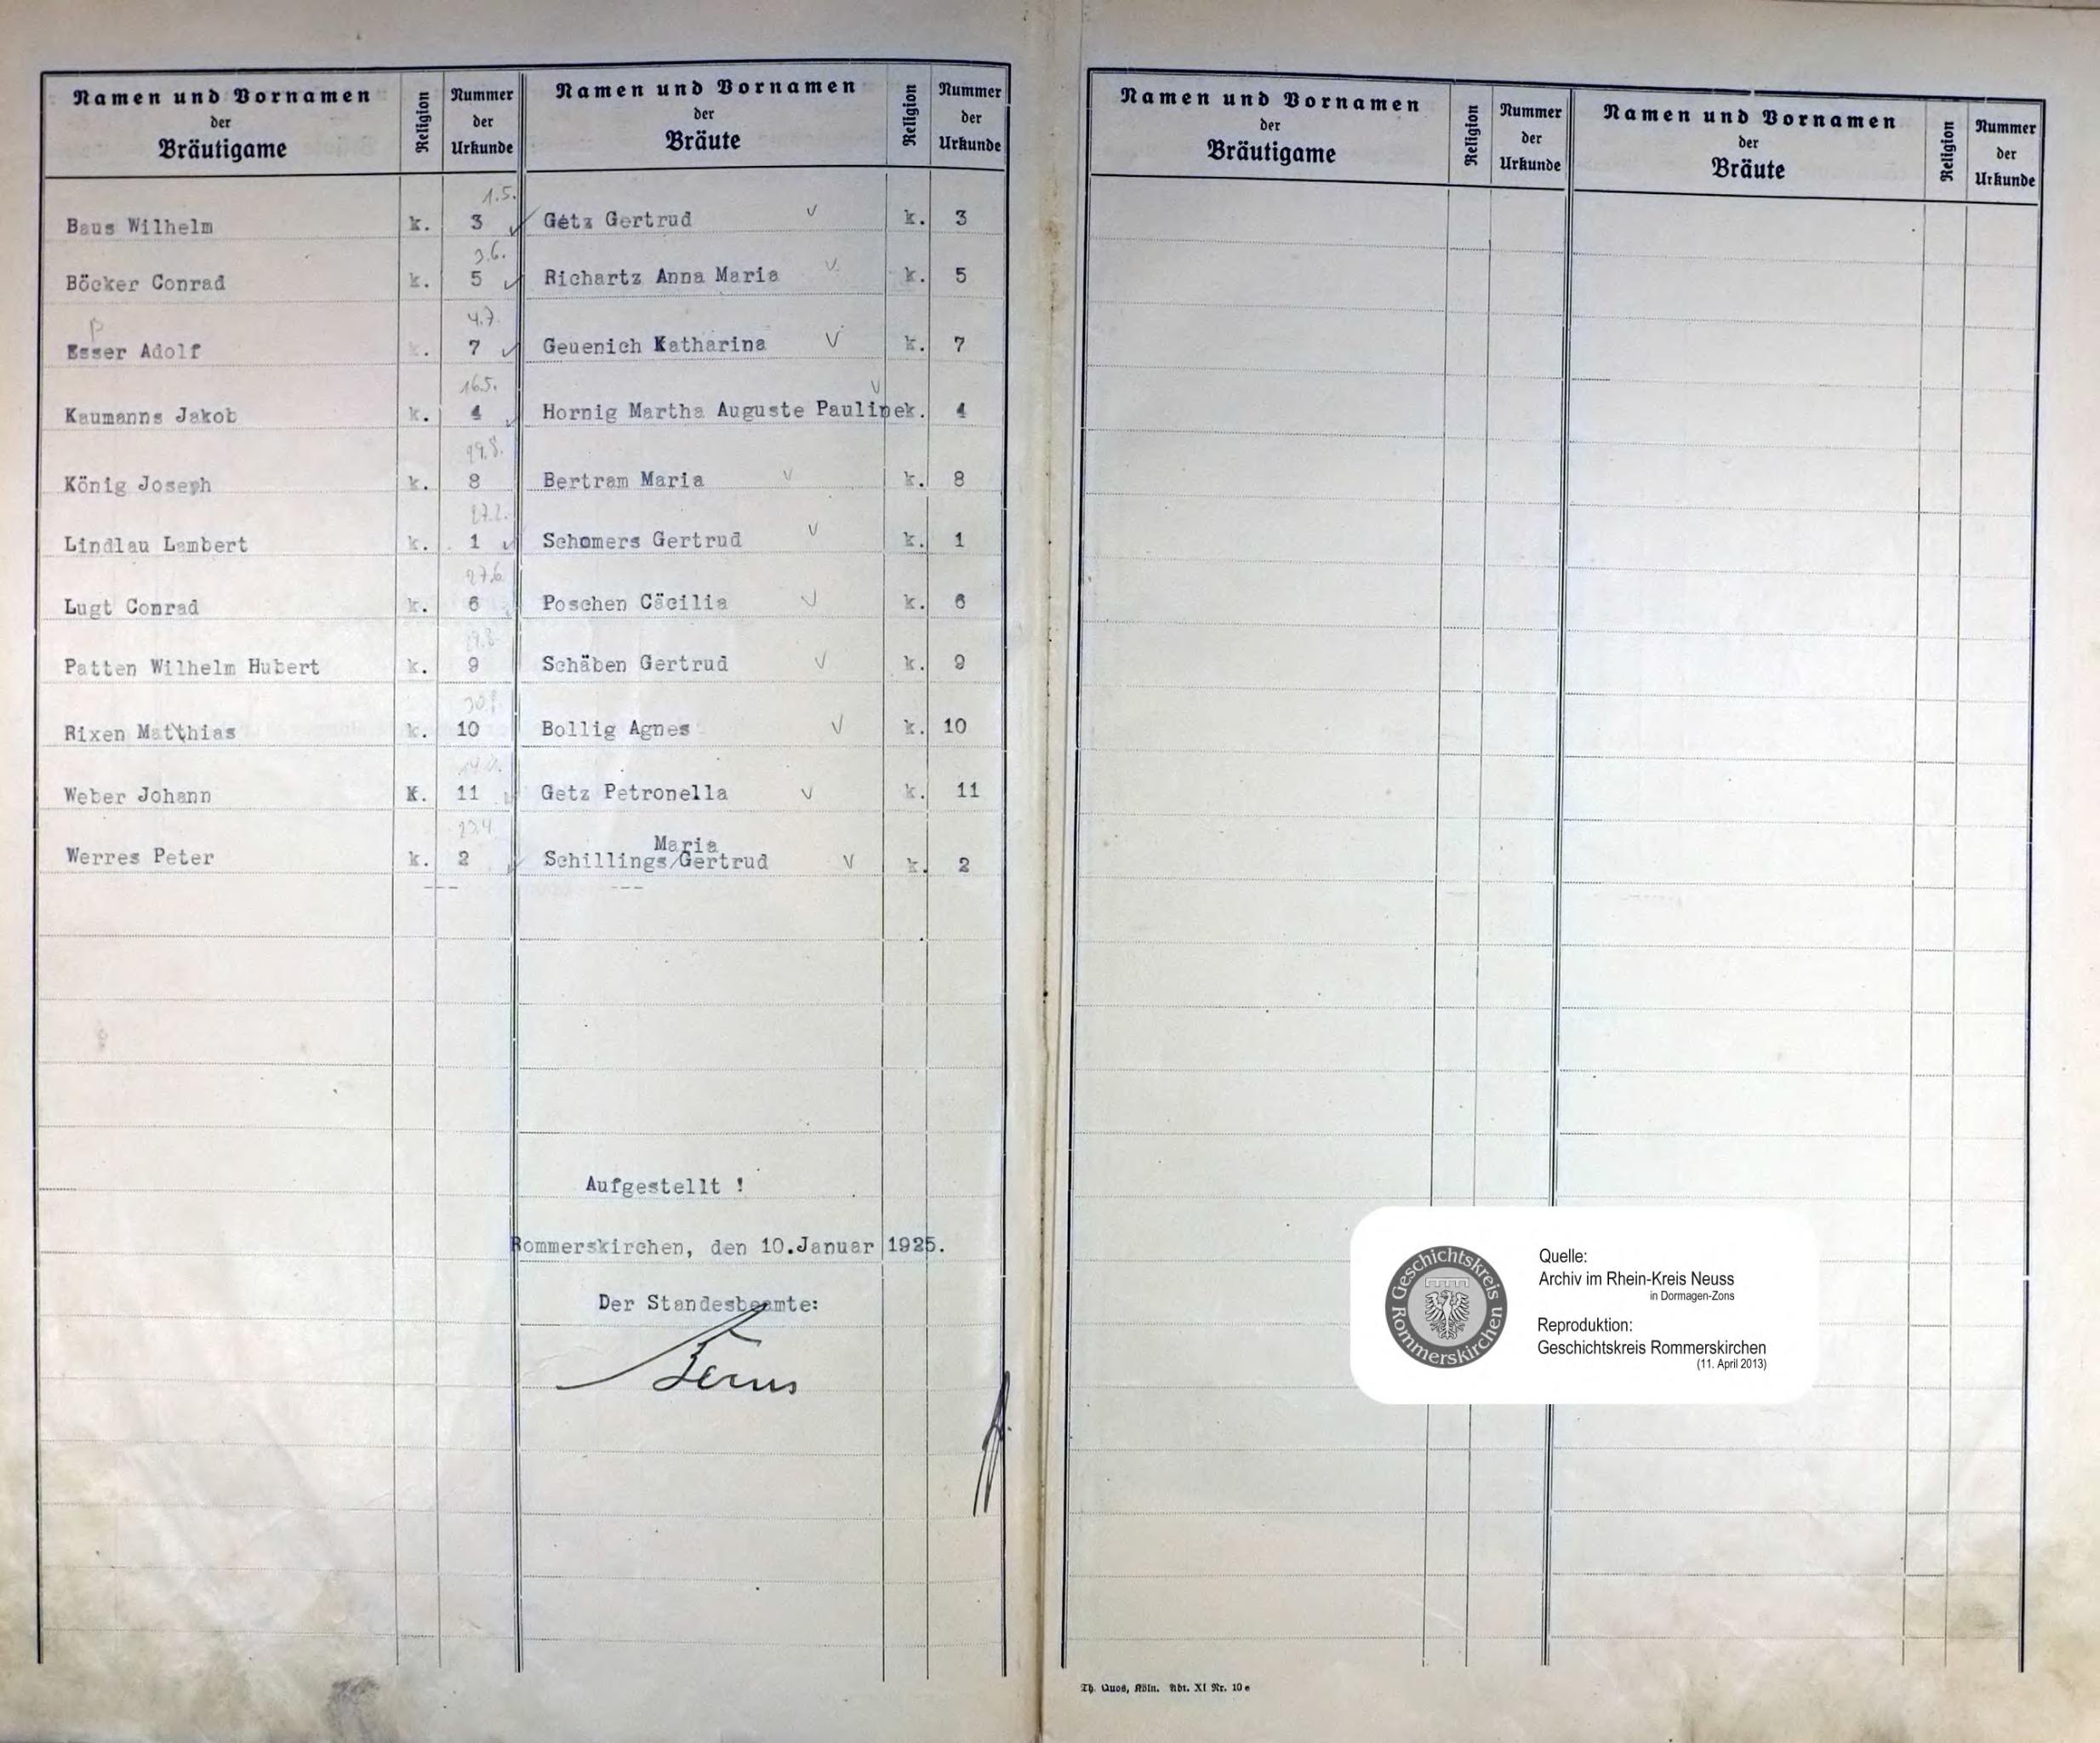 Namen und Vornamen der Bräutigame Religion Nummer der Urkunde Namen und Vornamen der Bräute Religion Nummer der Urkunde
1.5.
Baus Wilhelm k. 3 Getz Gertrud k. 3
3.6.
Böcker Conrad k. 5 Richartz Anna Maria k. 5
4.7.
Esser Adolf k. 7 Geuenich Katharina k. 7
16.5.
Kaumanns Jakob k. 4 Hornig Martha Auguste Pauline k. 4
29.8.
König Joseph k. 8 Bertram Maria k. 8
27.2.
Lindlau Lambert k. 1 Schomers Gertrud k. 1
27.6.
Lugt Conrad k. 6 Poschen Cäcilia k. 6
Patten Wilhelm Hubert k. 9 Schäben Gertrud k. 9
Rixen Matthias k. 10 Bollig Agnes k. 10
Weber Johann K. 11 Getz Petronella k. 11
23.4
Maria
Werres Peter k. 2 Schillings/Gertrud k. 2
--- ---
Aufgestellt !
Rommerskirchen, den 10.Januar 1925.
Der Standesbeamte:
Namen und Vornamen der Bräutigame Religion Nummer der Urkunde Namen und Vornamen der Bräute Religion Nummer der Urkunde
Geschichtskreis Rommerskirchen
Quelle:
Archiv im Rhein-Kreis Neuss
in Dormagen-Zons
Reproduktion:
Geschichtskreis Rommerskirchen
(11. April 2013)
Th. Quos, Köln. Abt. XI Nr. 10 e